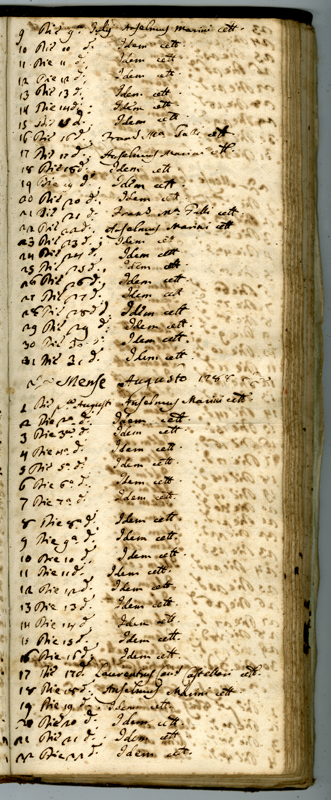 9 Die 9ª July Anselmus Marini cett.
10 Die 10 dª. Idem cett.
11 Die 11 dª. Idem cett.
12 Die 12 dª. Idem cett.
13 Die 13 dª. Idem cett.
14 Die 14 dª. Idem cett.
15 Die 15 dª. Idem cett.
16 Die 16 dª. Frans. Mª cett
17 Die 17 dª. Anselmus Marini cett.
18 Die 18 dª. Idem cett
19 Die 19 dª. Idem cett.
20 Die 20 dª. Idem cett
21 Die 21 dª. Frans. Mª cett
22 Die 22 dª. Anselmus Marini cett
23 Die 23 dª. Idem cett
24 Die 24 dª. Idem cett
25 Die 25 dª. Idem cett
26 Die 26 dª. Idem cett
27 Die 27 dª. Idem cett
28 Die 28 dª. Idem cett
29 Die 29 dª. Idem cett.
30 Die 30 dª. Idem cett.
31 Die 31 dª. Idem cett
Mense Augusto 1788
1 Die pª August Anselmus Marini cett.
2 Die 2ª dª. Idem cett.
3 Die 3ª dª. Idem cett.
4 Die 4ª dª. Idem cett.
5 Die 5ª dª. Idem cett.
6 Die 6ª dª. Idem cett.
7 Die 7ª dª. Idem cett.
8 Die 8ª dª. Idem cett.
9 Die 9ª dª. Idem cett.
10 Die 10 dª. Idem cett.
11 Die 11 dª. Idem cett.
12 Die 12 dª. Idem cett.
13 Die 13 dª. Idem cett.
14 Die 14 dª. Idem cett.
15 Die 15 dª. Idem cett.
16 Die 16 dª. Idem cett.
17 Die 17 dª. Laurentius cett.
18 Die 18 dª. Anselmus Marini cett.
19 Die 19 dª. Idem cett.
20 Die 20 dª. Idem cett.
21 Die 21 dª. Idem cett.
22 Die 22 dª. Idem cett.